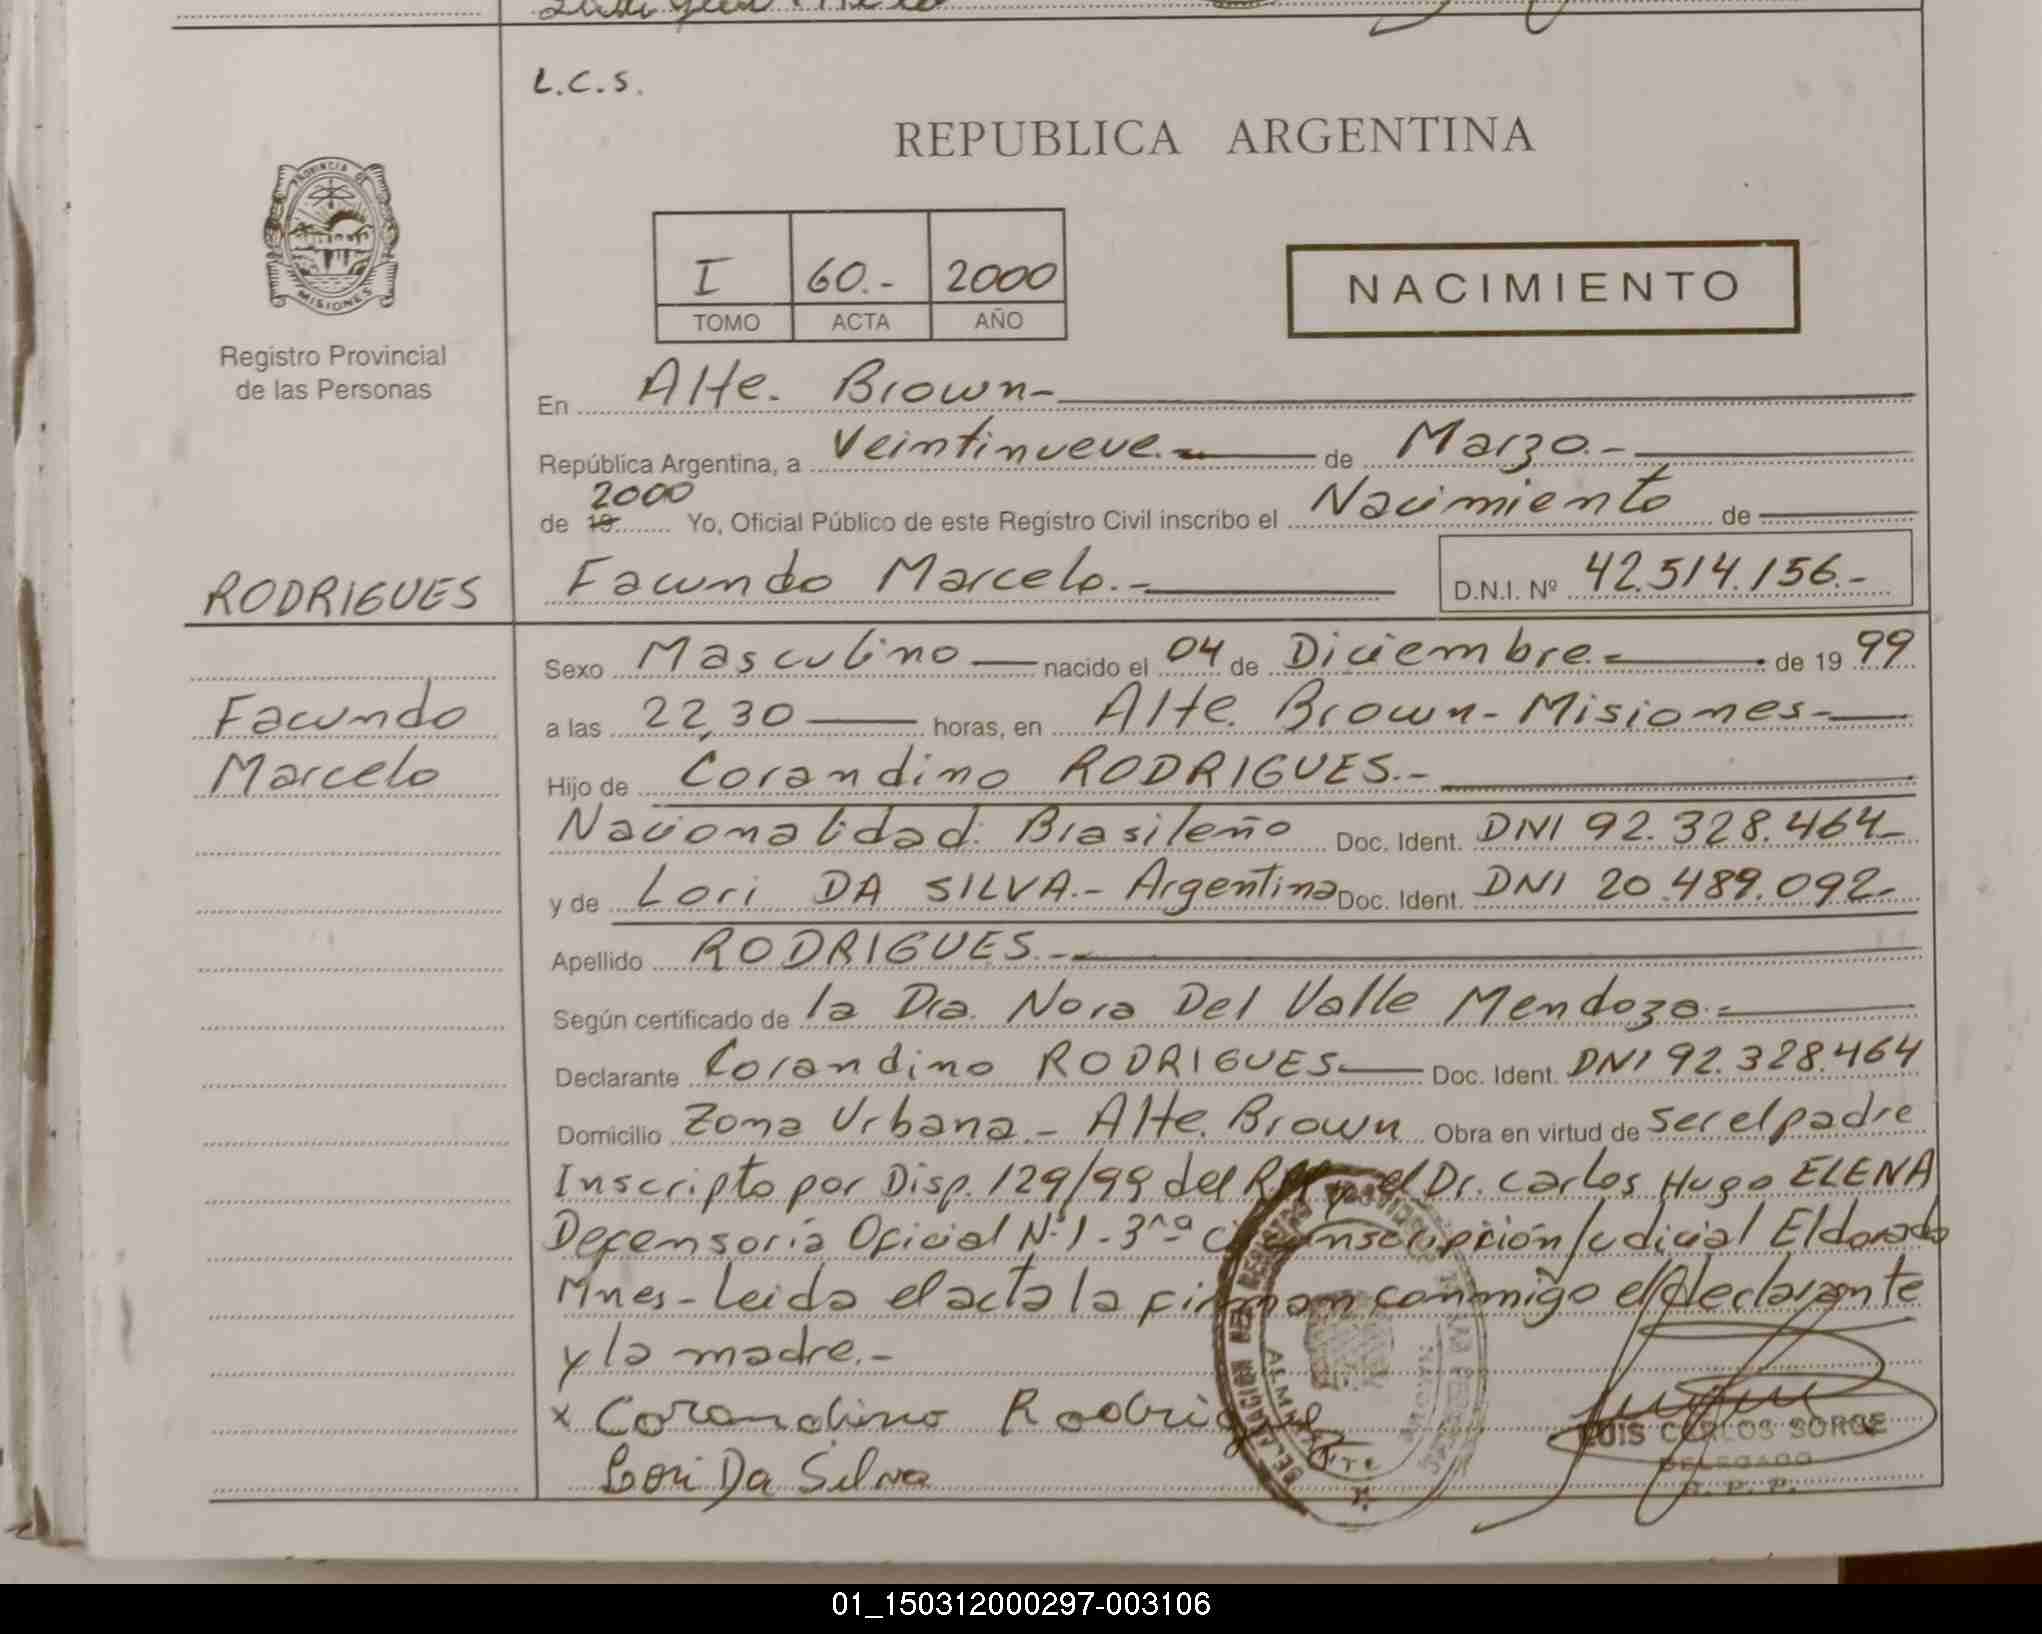 L.C.S.
REPUBLICA ARGENTINA
PROVINCIA DE
MISIONES
I 60.- 2000
TOMO ACTA AÑO
NACIMIENTO
Registro Provincial
de las Personas
En Alte. Brown-
República Argentina, a Veintinueve.- de Marzo.-
2000
de 19 Yo, Oficial Público de este Registro Civil inscribo el Nacimiento de
RODRIGUES
Facundo Marcelo.- D.N.I. Nº 42.514.156.-
Sexo Masculino nacido el 04 de Diciembre.- de 19 99
Facundo
a las 22,30 horas, en Alte. Brown- Misiones-
Marcelo
Hijo de Corandino RODRIGUES.-
Nacionalidad: Brasileño Doc. Ident. DNI 92.328.464-
y de Lori DA SILVA.- Argentina Doc. Ident. DNI 20.489.092-
Apellido RODRIGUES.-
Según certificado de la Dra. Nora Del Valle Mendoza.-
Declarante Corandino RODRIGUES Doc. Ident. DNI 92.328.464
Domicilio Zona Urbana - Alte. Brown Obra en virtud de ser el padre
Inscripto por Disp. 129/99 del y el Dr. Carlos Hugo ELENA
Defensoría Oficial Nº 1 - 3ra Circunscripción Judicial Eldorado
Mnes- Leida el acta la firman conmigo el declarante
y la madre.-
x Corandino Rodrigues
Lori Da Silva
LUIS CARLOS SORGE
DELEGADO
R. P. P.
01_150312000297-003106